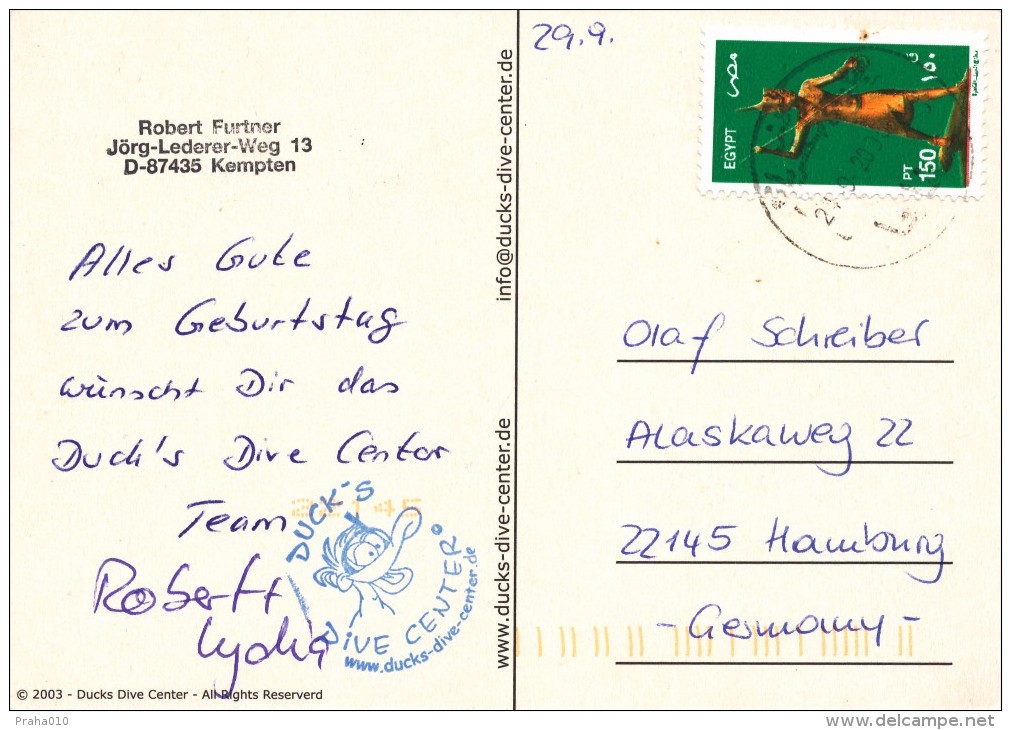 Robert Furtner
Jörg-Lederer-Weg 13
D-87435 Kempten
Alles Gute
zum Geburtstag
wünscht Dir das
Duck's Dive Center
Team
Robert +
Lydia
22145
DUCK'S
DIVE CENTER
www.ducks-dive-center.de
© 2003 - Ducks Dive Center - All Rights Reserverd
info@ducks-dive-center.de
www.ducks-dive-center.de
29.9.
EGYPT
مصر
١٥٠
PT
150
Olaf Schreiber
Alaskaweg 22
22145 Hamburg
- Germany -
Praha010
delcampe.net